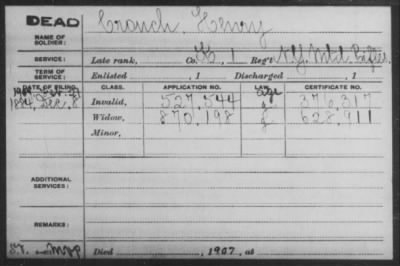 DEAD Crouch, Henry
NAME OF SOLDIER:
SERVICE: Late rank, Co. K, 1 Reg't N.Y. Mtd. Rifles
TERM OF SERVICE: Enlisted , 1 Discharged , 1
DATE OF FILING. CLASS. APPLICATION NO. LAW. CERTIFICATE NO.
Invalid, 527,544 376,317
1907, Dec. 8 Widow, 870,198 628,911
Minor,
ADDITIONAL SERVICES:
REMARKS:
Died , 1907, at